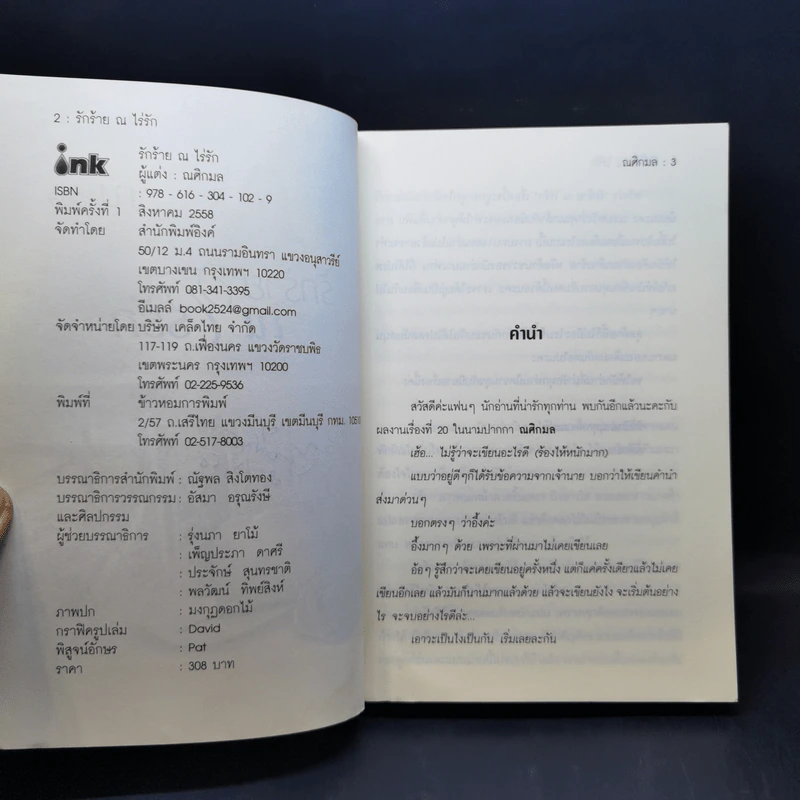 2 : รักร้าย ณ ไร่รัก
ink
รักร้าย ณ ไร่รัก
ผู้แต่ง : ณศิกมล
ISBN : 978 - 616 - 304 - 102 - 9
พิมพ์ครั้งที่ 1 สิงหาคม 2558
จัดทำโดย สำนักพิมพ์อิงค์
50/12 ม.4 ถนนรามอินทรา แขวงอนุสาวรีย์
เขตบางเขน กรุงเทพฯ 10220
โทรศัพท์ 081-341-3395
อีเมลล์ book2524@gmail.com
จัดจำหน่ายโดย บริษัท เคล็ดไทย จำกัด
117-119 ถ.เฟื่องนคร แขวงวัดราชบพิธ
เขตพระนคร กรุงเทพฯ 10200
โทรศัพท์ 02-225-9536
พิมพ์ที่ ข้าวหอมการพิมพ์
2/57 ถ.เสรีไทย แขวงมีนบุรี เขตมีนบุรี กทม. 10510
โทรศัพท์ 02-517-8003
บรรณาธิการสำนักพิมพ์ : ณัฐพล สิงโตทอง
บรรณาธิการวรรณกรรม : อัสมา อรุณรังษี
และศิลปกรรม
ผู้ช่วยบรรณาธิการ : รุ่งนภา ยาโม้
: เพ็ญประภา ดาศรี
: ประจักษ์ สุนทรชาติ
: พลวัฒน์ ทิพย์สิงห์
ภาพปก : มงกุฎดอกไม้
กราฟิครูปเล่ม : David
พิสูจน์อักษร : Pat
ราคา : 308 บาท
ณศิกมล : 3
คำนำ
สวัสดีค่ะแฟนๆ นักอ่านที่น่ารักทุกท่าน พบกันอีกแล้วนะคะกับ
ผลงานเรื่องที่ 20 ในนามปากกา ณศิกมล
เฮ้อ... ไม่รู้ว่าจะเขียนอะไรดี (ร้องไห้หนักมาก)
แบบว่าอยู่ดีๆก็ได้รับข้อความจากเจ้านาย บอกว่าให้เขียนคำนำ
ส่งมาด่วนๆ
บอกตรงๆ ว่าอึ้งค่ะ
อึ้งมากๆ ด้วย เพราะที่ผ่านมาไม่เคยเขียนเลย
อ้อๆ รู้สึกว่าจะเคยเขียนอยู่ครั้งหนึ่ง แต่ก็แค่ครั้งเดียวแล้วไม่เคย
เขียนอีกเลย แล้วมันก็นานมากแล้วด้วย แล้วจะเขียนยังไง จะเริ่มต้นอย่าง
ไร จะจบอย่างไรดีล่ะ...
เอาวะเป็นไงเป็นกัน เริ่มเลยละกัน